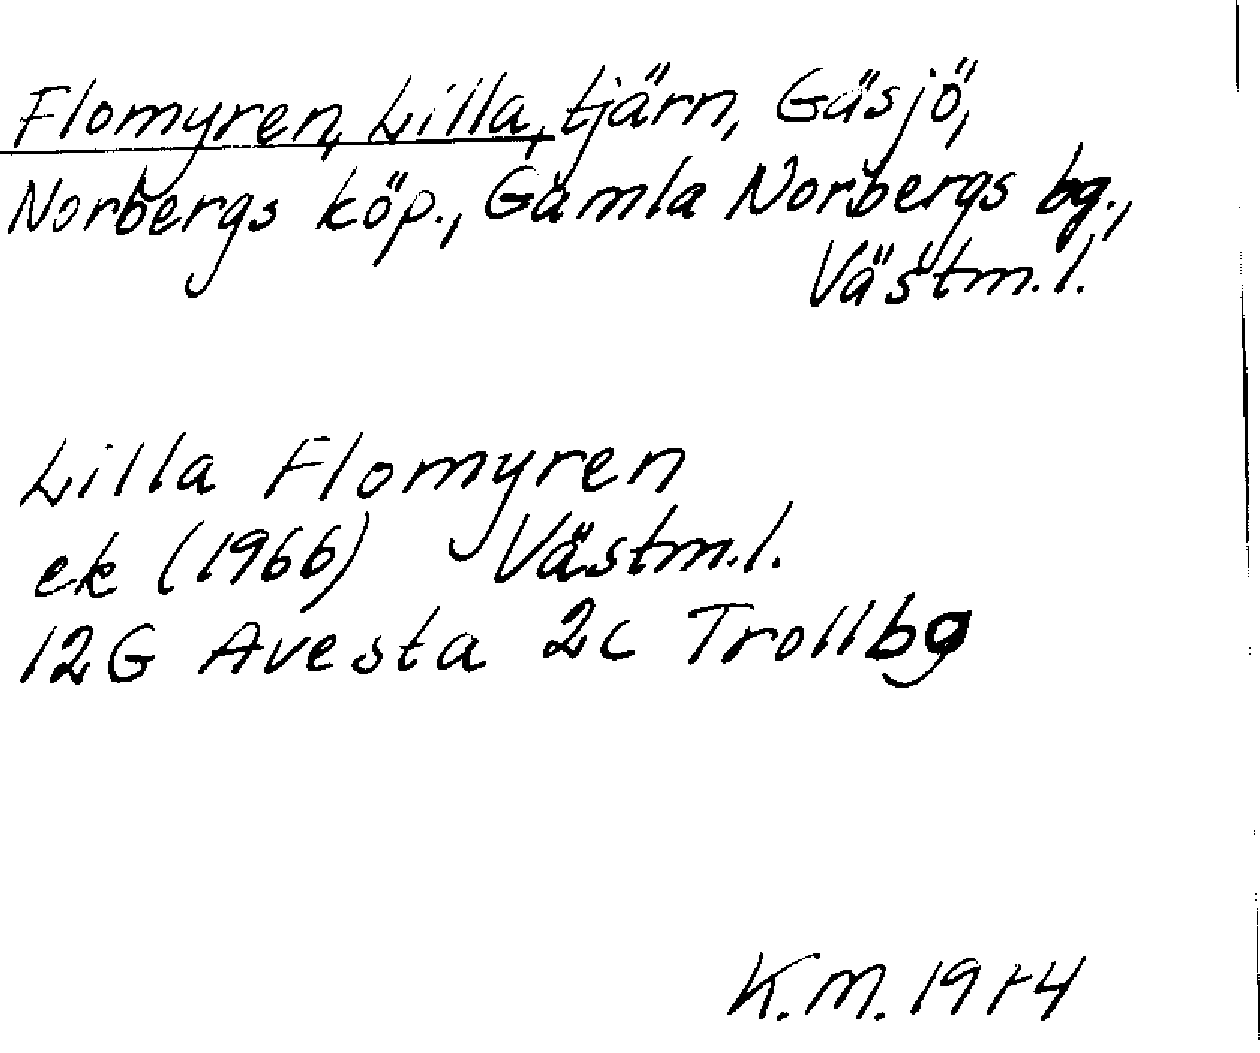 Flomyren, Lilla, tjärn, Gäsjö,
Norbergs köp., Gamla Norbergs bg.,
Västm.l.
Lilla Flomyren
ek (1966) Västm.l.
12G Avesta 2c Trollbo
K.M. 1974